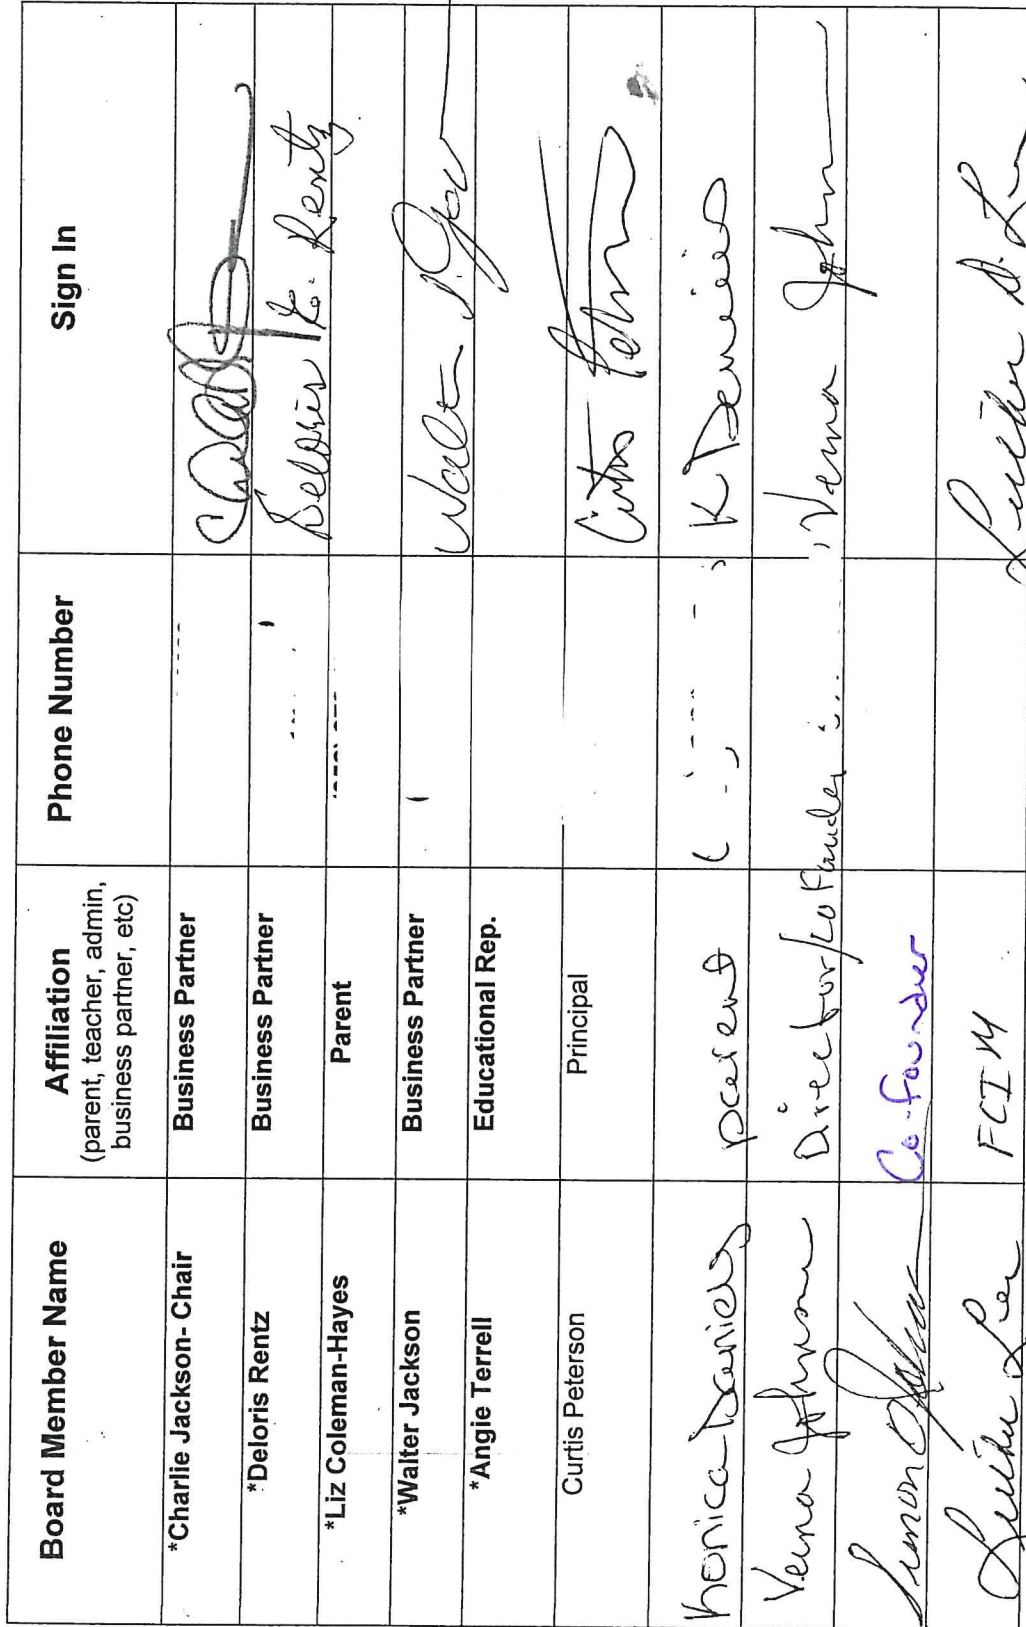 Board Member Name Affiliation Phone Number Sign In
(parent, teacher, admin,
business partner, etc)
*Charlie Jackson- Chair Business Partner
*Deloris Rentz Business Partner Deloris K. Rentz
*Liz Coleman-Hayes Parent
*Walter Jackson Business Partner Walter
*Angie Terrell Educational Rep.
Curtis Peterson Principal Curtis
Konica Daniels parent K Daniels
Verna Johnson Director/Co Founder Verna John
Simon Co-founder
Luther Lee FCIM Luther